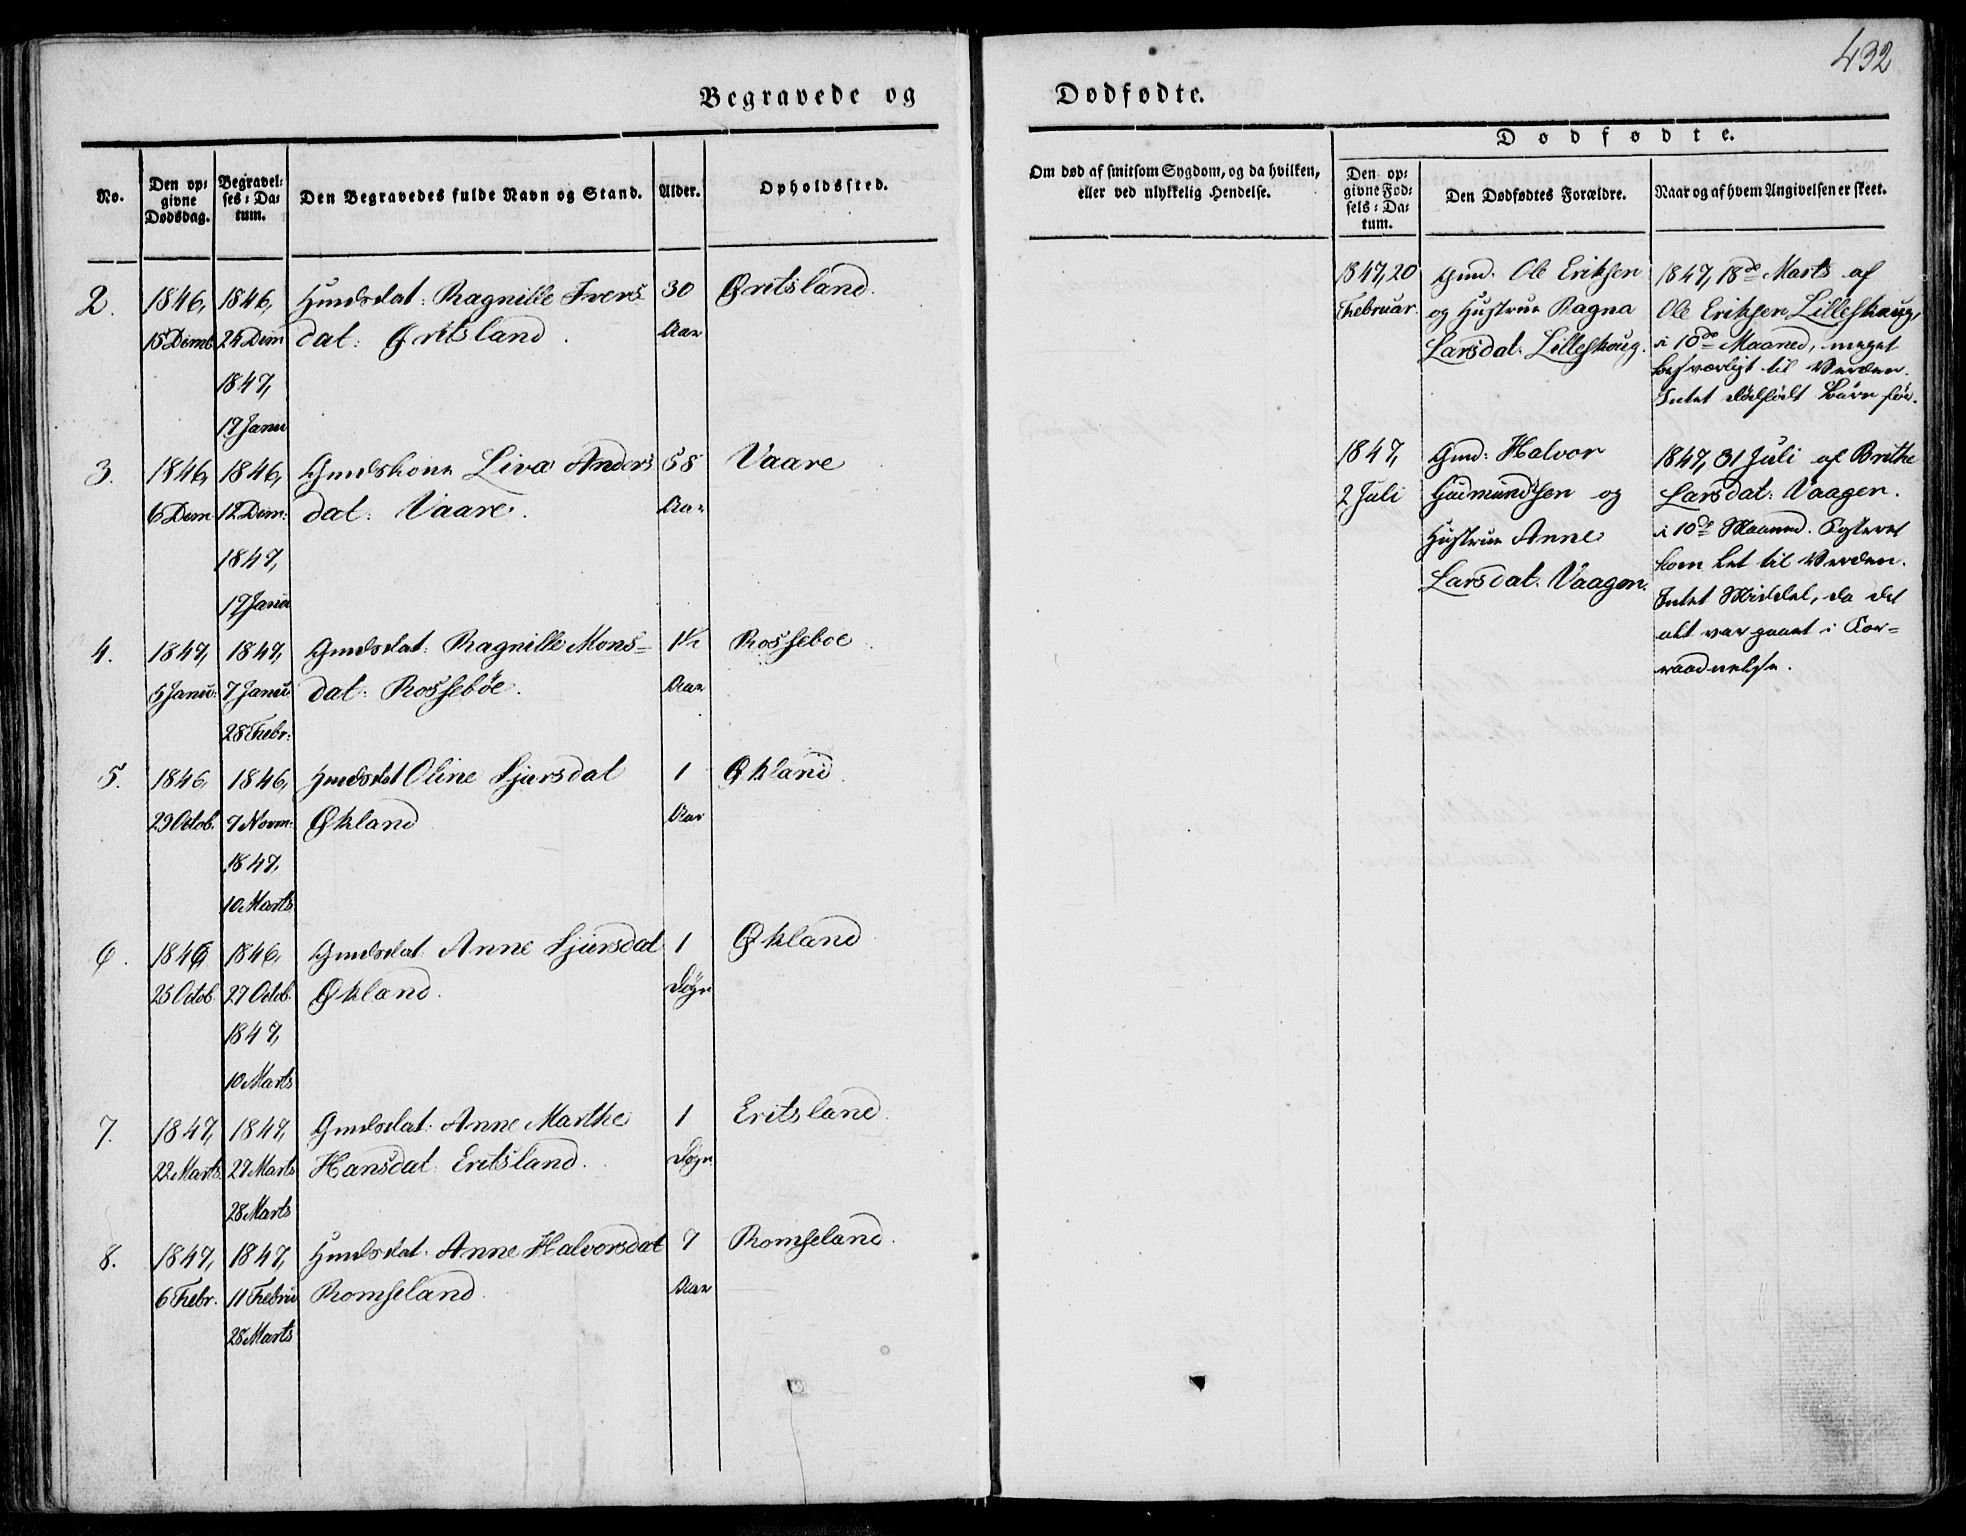 432
Begravede og
Dødfødte.
No.
Den op-
givne
Dødsdag.
Begravel-
ses-Da-
tum.
Den Begravedes fulde Navn og Stand.
Alder.
Opholdssted.
2.
1846,
15 Decmb.
1846,
24 Decm
1847,
17 Janu
Ragnille Ivers
dat: Øritsland.
30
Aar
Øritsland.
3.
1846,
6 Decm
1846,
12 Decm:
1847,
17 Janu
Gmdskone Liva Anders
dat: Vaare.
58
Aar
Vaare
4.
1847,
5 Janu:
1847,
7 Janu
28 Febr:
Gmdsdat: Ragnille Mons-
dat: Rossebøe.
1½
Aar
Rossebøe
5.
1846,
29 Octob.
1846,
7 Novm:
1847,
10 Marts
Oline Sjursdat
Økland
1
Aar
Økland.
6.
1846
25 Octob.
1846,
27 Octob.
1847,
10 Marts
Gmdsdat: Anne Sjursdat
Økland.
1
Døgn
Økland
7.
1847,
22 Marts
1847,
27 Marts
28 Marts
Gmdsdat: Anne Marthe
Hansdat: Eritsland.
1
Døgn
Eritsland.
8.
1847,
6 Febr.
1847,
11 Febru
28 Marts
Anne Halvorsdat
Romseland.
7
Aar
Romseland.
Om død af smitsom Sygdom, og da hvilken,
eller ved ulykkelig Hendelse.
Dødfødte.
Den op-
givne Fød-
sels-Da-
tum.
Den Dødfødtes Forældre.
Naar og af hvem Angivelsen er skeet.
1847, 20
Februar.
Ole Eriksen
og Hustrue Ragna
Larsdat: Lilleskoug.
1847, 18de Marts af
Ole Eriksen Lilleskaug,
i 10de Maaned, meget
besværligt til Verden.
Intet dødfødt Barn før.
1847,
2 Juli
Gmd: Halvor
Gudmundsen og
Hustrue Anne
Larsdat: Vaagen.
1847, 31 Juli af Brithe
Larsdat: Vaagen.
i 10de Maaned. Fosteret
kom let til Verden.
Intet Middel, da det
alt var gaaet i For-
raadnelse.